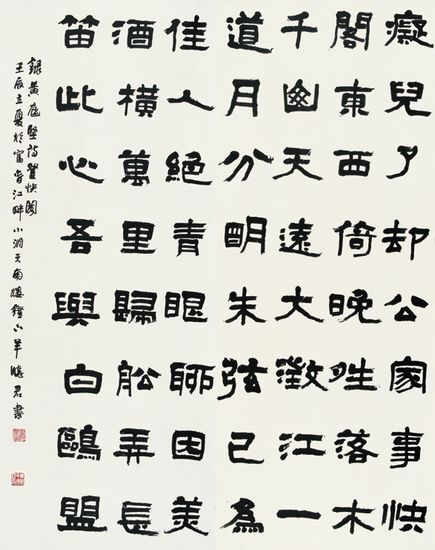 癡兒了却公家事快
閣東西倚晚夝落木
千山天遠大澂江一
道月分明朱弦已為
佳人絕青眼聊因美
酒橫萬里歸舩弄長
笛此心吾與白鷗盟
録黃庭堅詩登快閣
壬辰立夏於富春江畔小天南樓鐙下羊曉君書